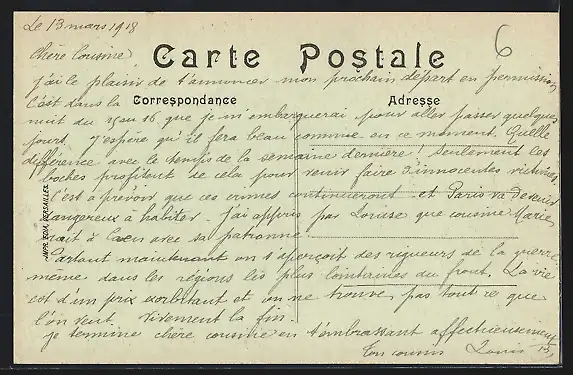 Le 13 mars 1918
6
Chère Cousine
Carte Postale
j'ai le plaisir de t'annoncer mon prochain départ en permission
C'est dans la
Correspondance
Adresse
nuit du 15 au 16 que je m'embarquerai pour aller passer quelques
jours. J'espère qu'il fera beau comme en ce moment. Quelle
différence avec le temps de la semaine dernière ! Seulement les
boches profitent de cela pour venir faire d'innocentes victimes.
C'est à prévoir que ces crimes continueront et Paris va devenir
dangereux à habiter. J'ai appris par Louise que cousine Marie
était à Caen avec sa patronne.
Partout maintenant on s'aperçoit des rigueurs de la guerre
même dans les régions les plus lointaines du front. La vie
est d'un prix exorbitant et on ne trouve pas tout ce que
l'on veut. Vivement la fin.
je termine chère cousine en t'embrassant affectueusement
Ton cousin Louis
IMP. EDIA. VERSAILLES